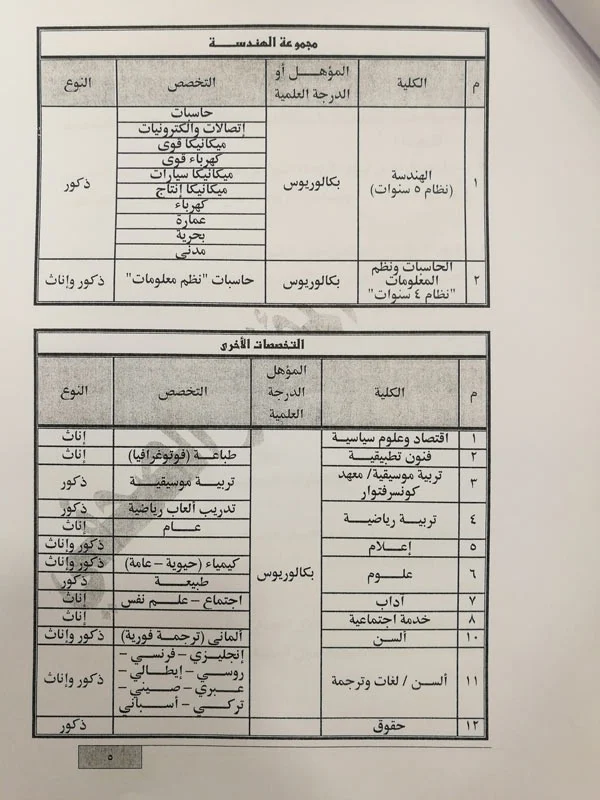 مجموعة الهندسة
م	الكلية	المؤهل أو الدرجة العلمية	التخصص	النوع
١	الهندسة (نظام ٥ سنوات)	بكالوريوس	حاسبات	ذكور
إتصالات والكترونيات
ميكانيكا قوى
كهرباء قوى
ميكانيكا سيارات
ميكانيكا إنتاج
كهرباء
عمارة
بحرية
مدنى
٢	الحاسبات ونظم المعلومات "نظام ٤ سنوات"	بكالوريوس	حاسبات "نظم معلومات"	ذكور وإناث
التخصصات الأخرى
م	الكلية	المؤهل الدرجة العلمية	التخصص	النوع
١	اقتصاد وعلوم سياسية	بكالوريوس	إناث
٢	فنون تطبيقية	طباعة (فوتوغرافيا)	إناث
٣	تربية موسيقية/ معهد كونسرفتوار	تربية موسيقية	ذكور
٤	تربية رياضية	تدريب ألعاب رياضية	ذكور
عام	إناث
٥	إعلام	ذكور وإناث
٦	علوم	كيمياء (حيوية – عامة)	ذكور وإناث
طبيعة	ذكور
٧	آداب	اجتماع – علم نفس	إناث
٨	خدمة اجتماعية	إناث
١٠	ألسن	ألمانى (ترجمة فورية)	ذكور وإناث
١١	ألسن / لغات وترجمة	إنجليزي – فرنسي –	ذكور وإناث
روسي – إيطالي –
عبري – صيني –
تركي – أسباني
١٢	حقوق	ذكور
٥